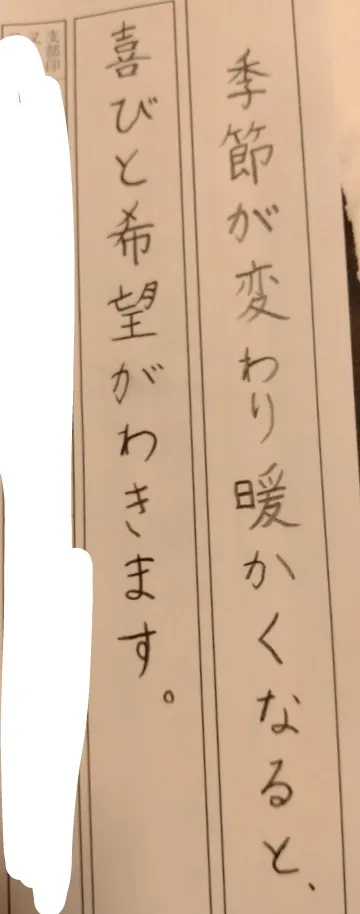 季節が変わり暖かくなると、
喜びと希望がわきます。
支部印